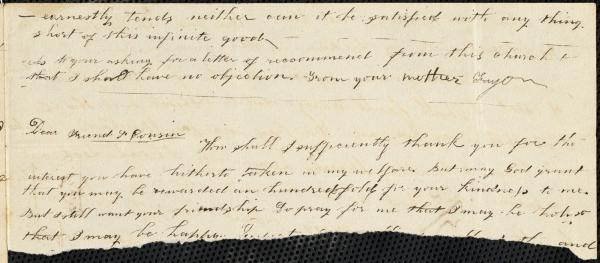 – earnestly tends neither can it be satisfied with any thing.
short of this infinite good
As to your asking for a letter of recommend from this church &
that I shall have no objection. From your mother
Dear Friend & Cousin
How shall I sufficiently thank you for the
interest you have hitherto taken in my welfare But may God grant
that you may be rewarded an hundredfold for your kindness to me.
But I still want your friendship Do pray for me that I may be holy so
that I may be happy. and